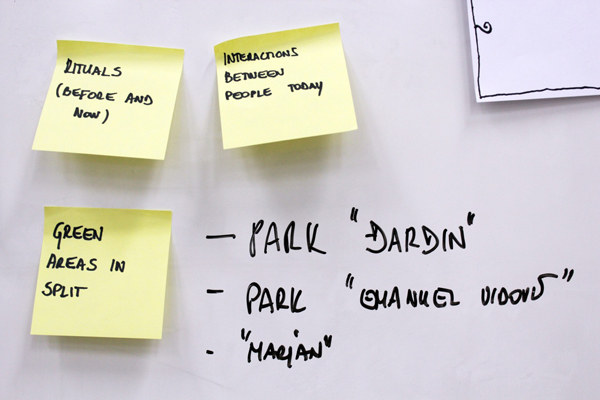 RITUALS
(BEFORE AND
NOW)
INTERACTIONS
BETWEEN
PEOPLE TODAY
GREEN
AREAS IN
SPLIT
— PARK "DARDIN"
- PARK "EMANUEL VIDOVIĆ"
- "MARJAN"